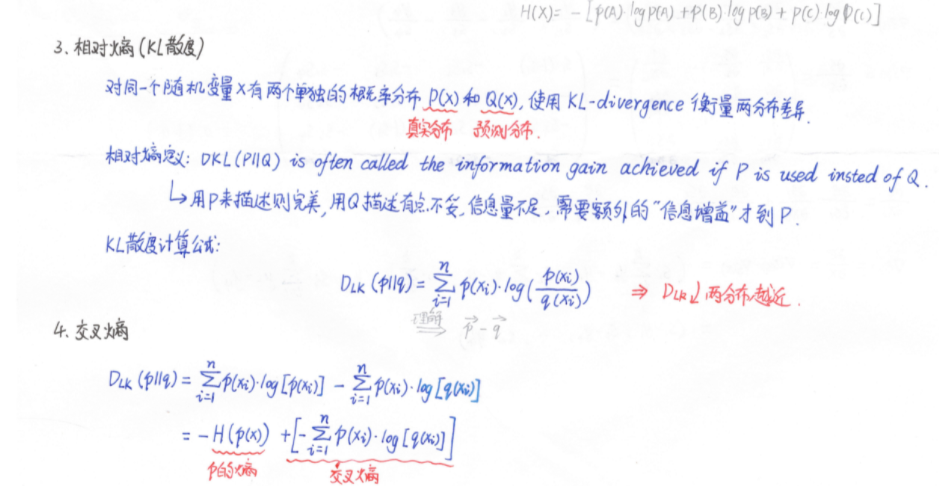 H(X)= -[p(A)·logp(A) +p(B)·logp(B) + p(C)·logp(C)]
3、相对熵(KL散度)
对同一个随机变量X有两个单独的概率分布P(X)和Q(X),使用KL-divergence衡量两分布差异.
真实分布 预测分布.
相对熵定义: DKL(P||Q) is often called the information gain achieved if P is used insted of Q.
↳用P来描述则完美,用Q描述有点不妥,信息量不足,需要额外的“信息增益”才到P.
KL散度计算公式:
D_LK (p||q) = \sum_{i=1}^{n} p(xi)·log(\frac{p(xi)}{q(xi)}) ⇒ D_LK↓两分布越近.
理解⇒ \vec{p}-\vec{q}
4、交叉熵
D_LK (p||q) = \sum_{i=1}^{n} p(xi)·log[p(xi)] - \sum_{i=1}^{n} p(xi)·log[q(xi)]
= -H(p(x)) +[-\sum_{i=1}^{n} p(xi)·log[q(xi)]]
p的熵 交叉熵